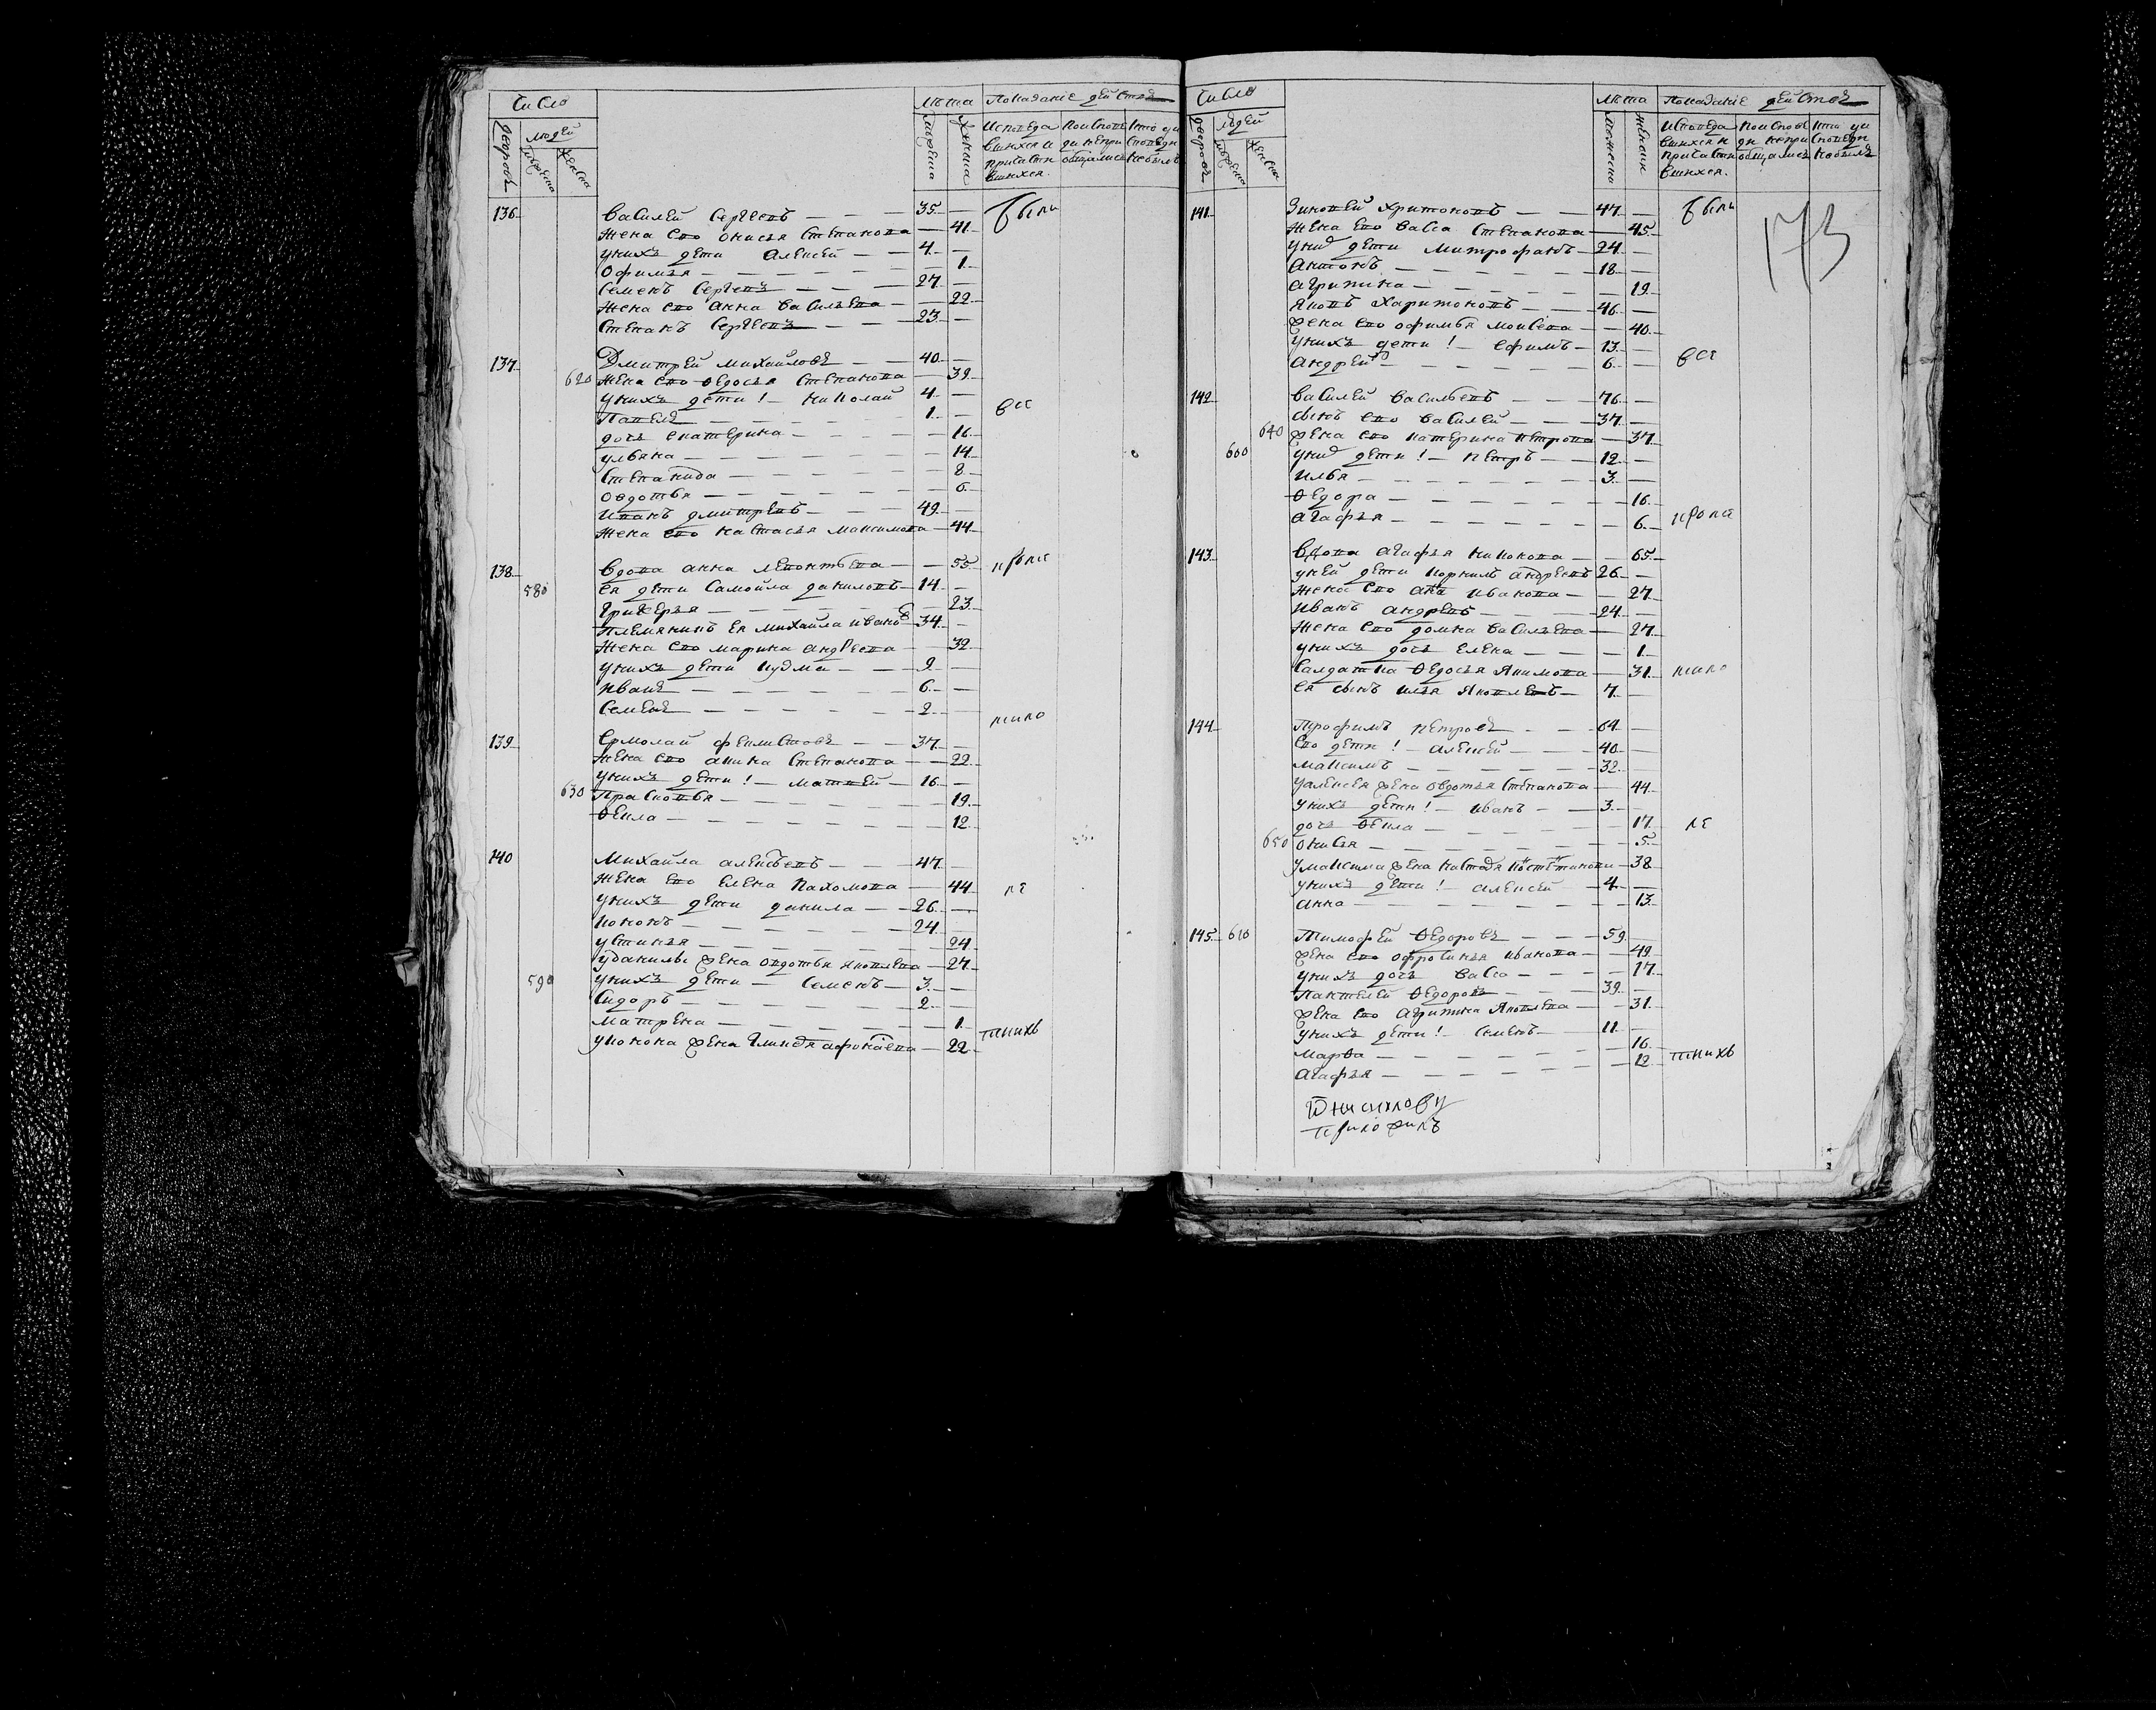 Число
дворовъ
людей
мужеска
женска
лета
мужеска
женска
Показаніе действъ
Исповеда
вшихся и
причасти
вшихся.
Поиспове
ди непри
общались
Кто уи
споведи
небылъ
136 Василей Сергеевъ — 35 — были
жена ево Онисья Степанова — 41
у нихъ дети Алексей — 4 —
Офимья — 1
Семенъ Сергеевъ — 27 —
жена ево Анна Васильева — 22
Степанъ Сергеевъ — 23 —
137 Дмитрей Михайловъ — 40 —
620 жена ево Ѳедосья Степанова — 39
у нихъ дети! — Николай 4 —
Павелъ — 1 — все
дочь Екатерина — 16
Ульяна — 14
Степанида — 8
Овдотья — 6
Иванъ Дмитревъ — 49 —
жена ево Настасья Максимова — 44
138 Вдова Анна Левонтьева — 55 кроме
580 ея дети Самойла Даниловъ — 14 —
Гликерья — 23
племяникъ ея Михайла Ивановъ 34 —
жена ево Марина Андреева — 32
у нихъ дети Кузма — 9 —
Иванъ — 6 —
Семенъ — 2 —
мало
139 Ермолай Феликтовъ — 37 —
жена ево Анна Степанова — 22
у нихъ дети! — Матвей — 16 —
630 Прасковья — 19
Ѳекла — 12
140 Михайла Алексеевъ — 47 —
жена ево Елена Пахомова — 44 ле
у нихъ дети Данила — 26 —
Кононъ — 24
Устинья — 24
у Данилы жена Овдотья Яковлева — 27
590 у нихъ дети — Семенъ — 3 —
Сидоръ — 2 —
Матрена — 1
у Конона жена Гликерья Афонасева — 22 тнихъ
Число
дворовъ
людей
мужеска
женска
лета
мужеска
женски
Показаніе действъ
Исповеда
вшихся и
причасти
вшихся.
Поиспове
ди непри
общались
Кто уи
споведи
небылъ
141 Зиновей Хритоновъ — 47 — были
173
жена ево Васса Степанова — 45
у нихъ дети Митрофанъ — 24 —
Антонъ — 18 —
Агрипина — 19
Яковъ Харитоновъ — 46 —
жена ево Офимья Моисева — 40
у нихъ дети! — Ефимъ — 13 —
Андрей — 6 — все
142 Василей Васильевъ — 76 —
сынъ ево Василей — 37 —
640 жена ево Катерина Петрова — 37
600 у нихъ дети! — Петръ — 12 —
Илья — 3 —
Ѳедора — 16
Агафья — 6 кроме
143 Вдова Агафья Никонова — 65
у ней дети Корнилъ Андреевъ 26 —
жена ево Анна Иванова — 27
Иванъ Андреевъ — 24 —
жена ево Домна Васильева — 27
у нихъ дочь Елена — 1
салдатка Ѳедосья Якимова — 31 мало
ея сынъ Илья Яковлевъ — 7 —
144 Трофимъ Петровъ — 64 —
ево дети! — Алексей — 40 —
Максимъ — 32 —
у Алексея жена Овдотья Степанова — 44
у нихъ дети! — Иванъ — 3 —
дочь Ѳекла — 17 ле
650 Онисья — 5
у Максима жена Настасья Костентинова — 38
у нихъ дети! — Алексей — 4 —
Анна — 13
145 610 Тимофей Ѳедоровъ — 59 —
жена ево Офросинья Иванова — 49
у нихъ дочь Васса — 17
Пантелей Ѳедоровъ — 39 —
жена ево Агрипина Яковлева — 31
у нихъ дети! — Семенъ — 11 —
Марѳа — 16
Агафья — 12 тнихъ